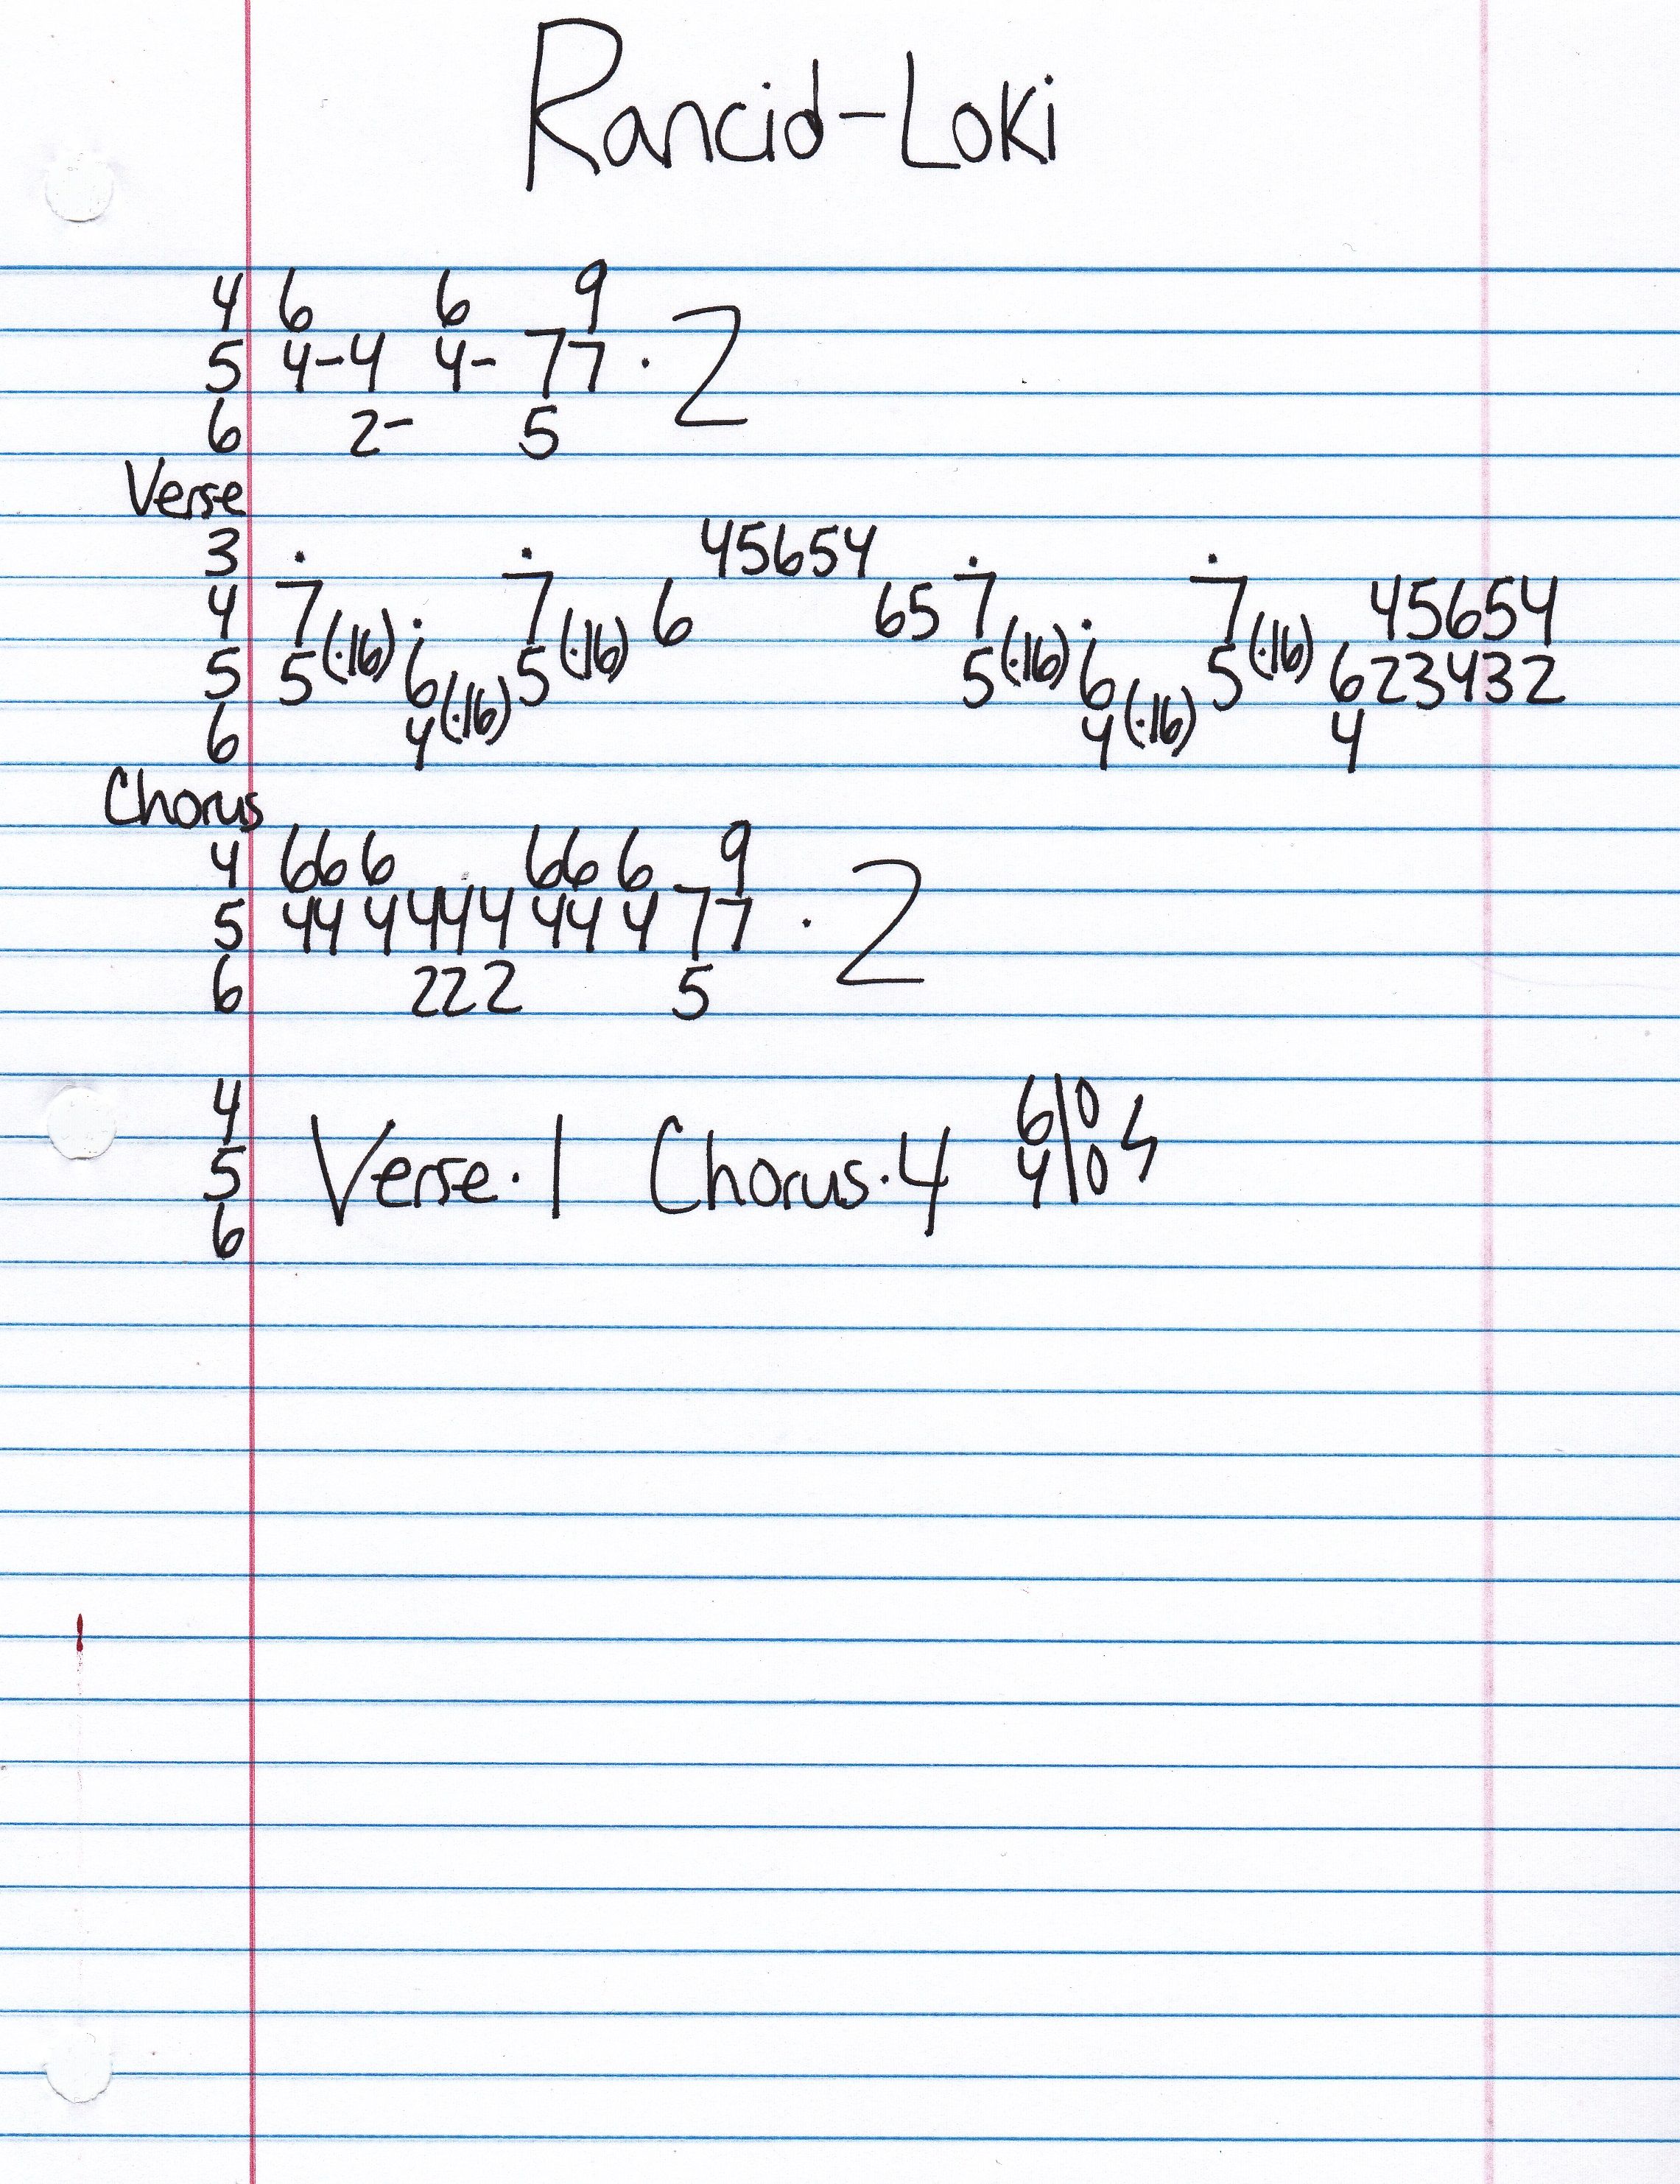 Rancid-Loki
4 6 6 9
5 4-4 4- 77 · 2
6 2- 5
Verse
3 . . 45654 . .
4 7 . 7 6 65 7 . 7 45654
5 5(·16) 6 5(·16) 5(·16) 6 5(·16) 623432
6 4(·16) 4(·16) 4
Chorus
4 66 6 66 6 9
5 44 4 444 44 4 77 · 2
6 222 5
4 6|0
5 Verse·1 Chorus·4 4|0
6